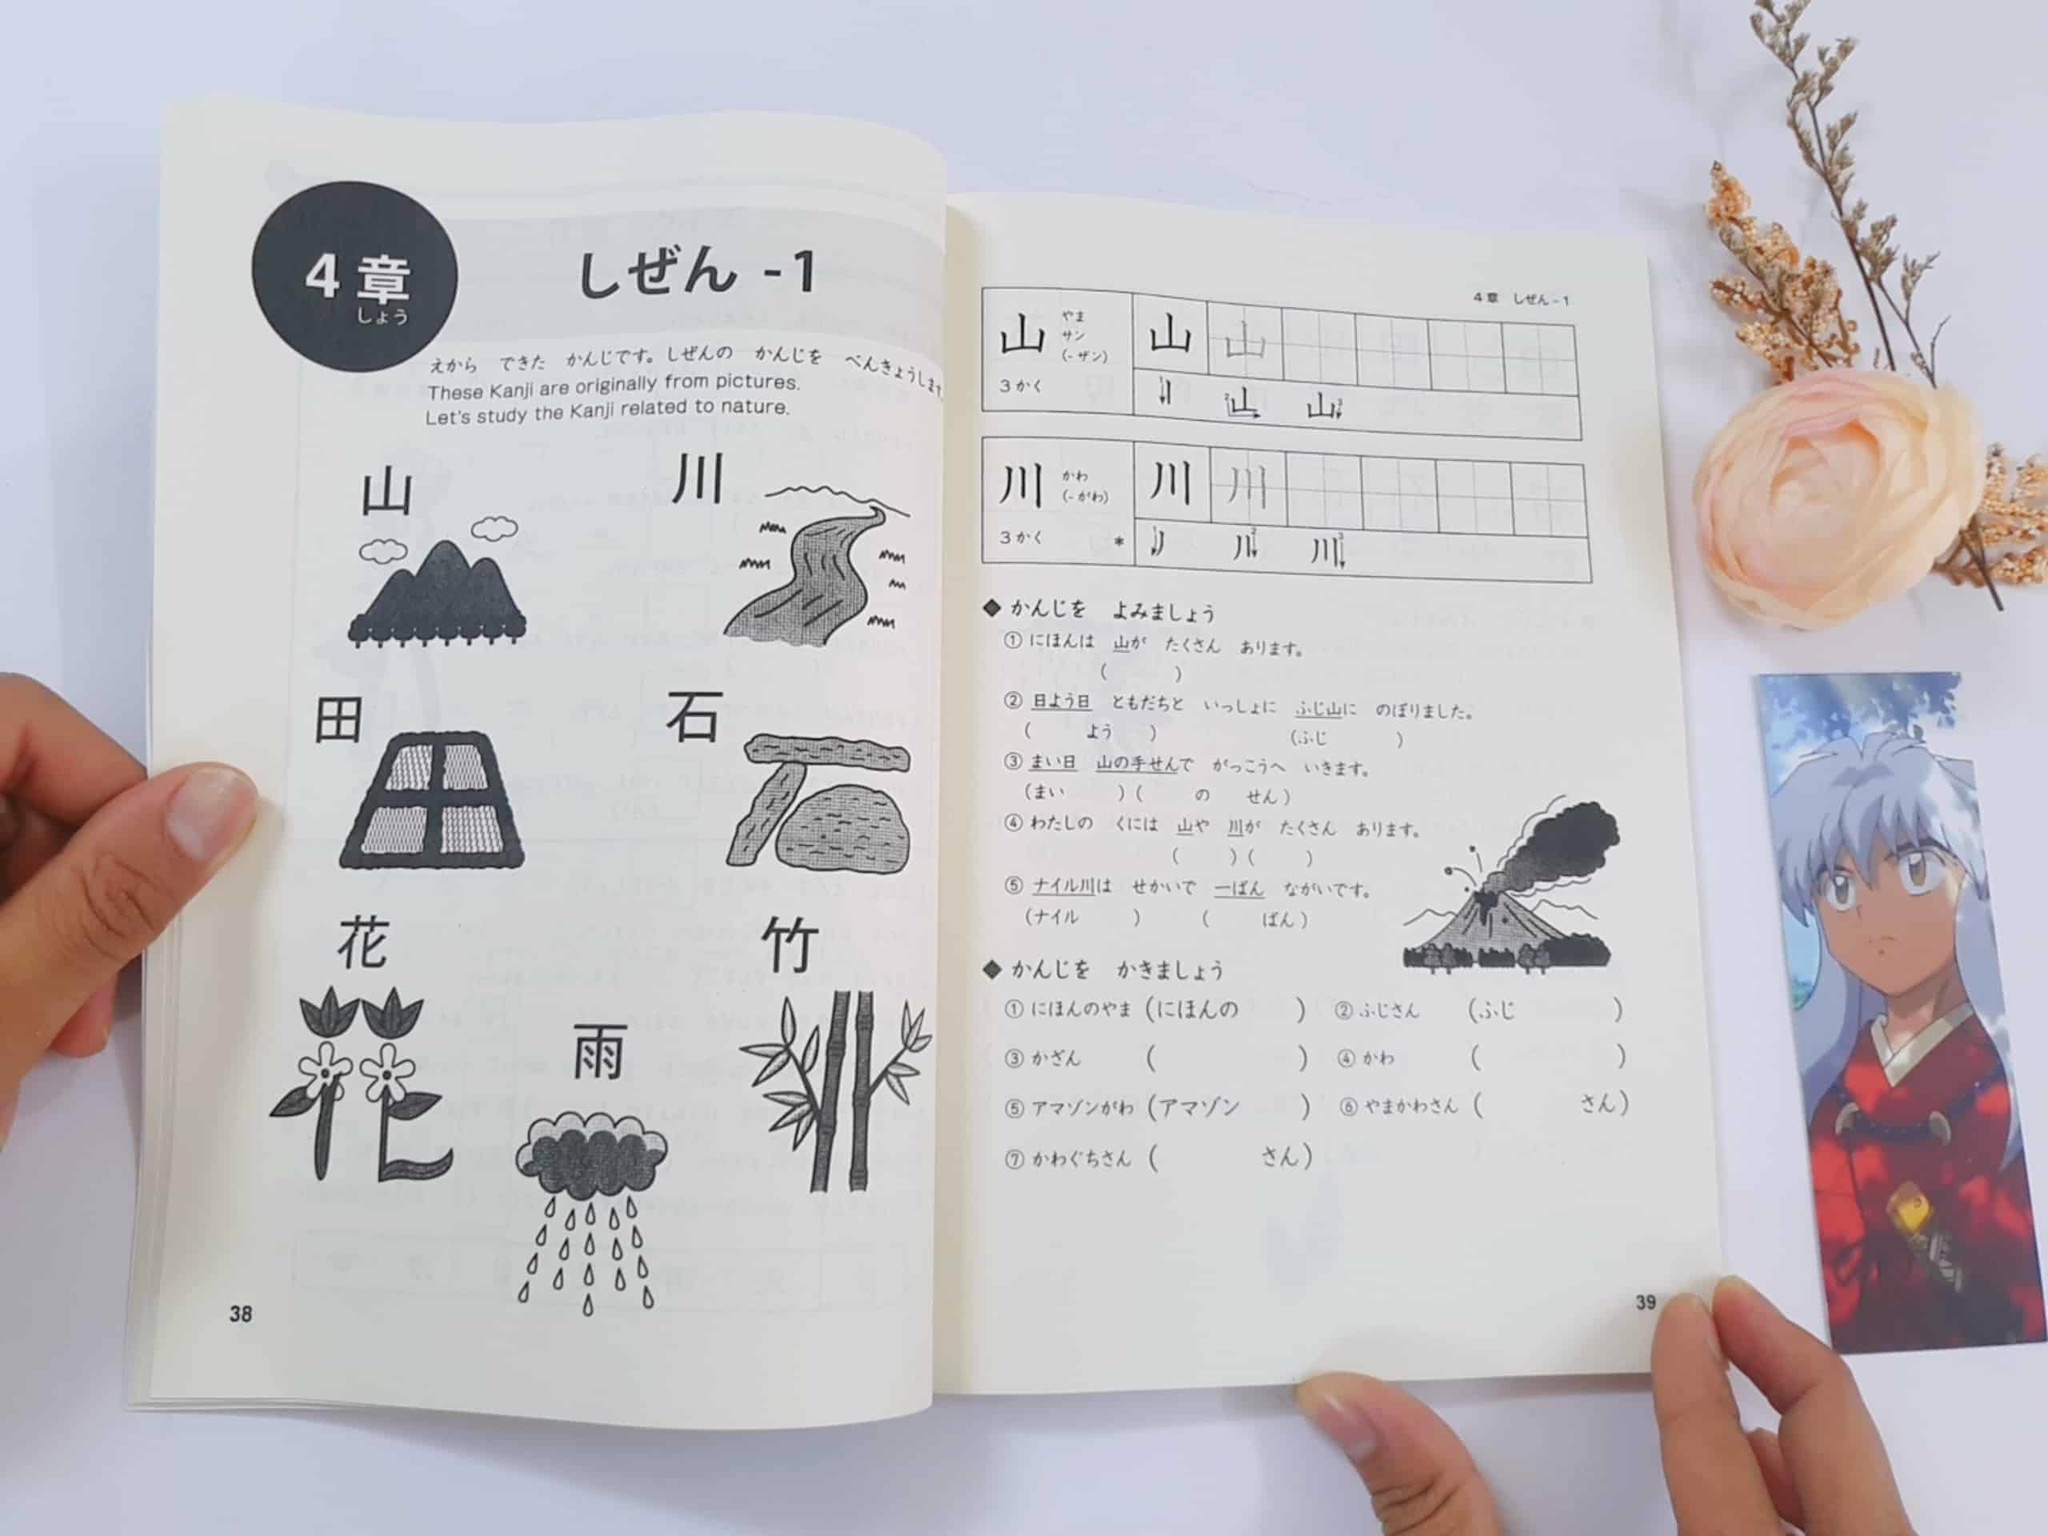 4章
しょう
しぜん -1
えから できた かんじです。しぜんの かんじを べんきょうします
These Kanji are originally from pictures.
Let's study the Kanji related to nature.
山
川
田
石
花
竹
雨
38
4章 しぜん-1
山
やま
サン
(-ザン)
3かく
山 山
1 2 山 山3
川
かわ
(-がわ)
3かく
*
川 川
1 川2 川3
◆ かんじを よみましょう
① にほんは 山が たくさん あります。
( )
② 日よう日 ともだちと いっしょに ふじ山に のぼりました。
( よう ) (ふじ )
③ まい日 山の手せんで がっこうへ いきます。
(まい ) ( の せん)
④ わたしの くには 山や 川が たくさん あります。
( ) ( )
⑤ ナイル川は せかいで 一ばん ながいです。
(ナイル ) ( ばん)
◆ かんじを かきましょう
① にほんのやま (にほんの ) ② ふじさん (ふじ )
③ かざん ( ) ④ かわ ( )
⑤ アマゾンがわ (アマゾン ) ⑥ やまかわさん ( さん)
⑦ かわぐちさん ( さん)
39